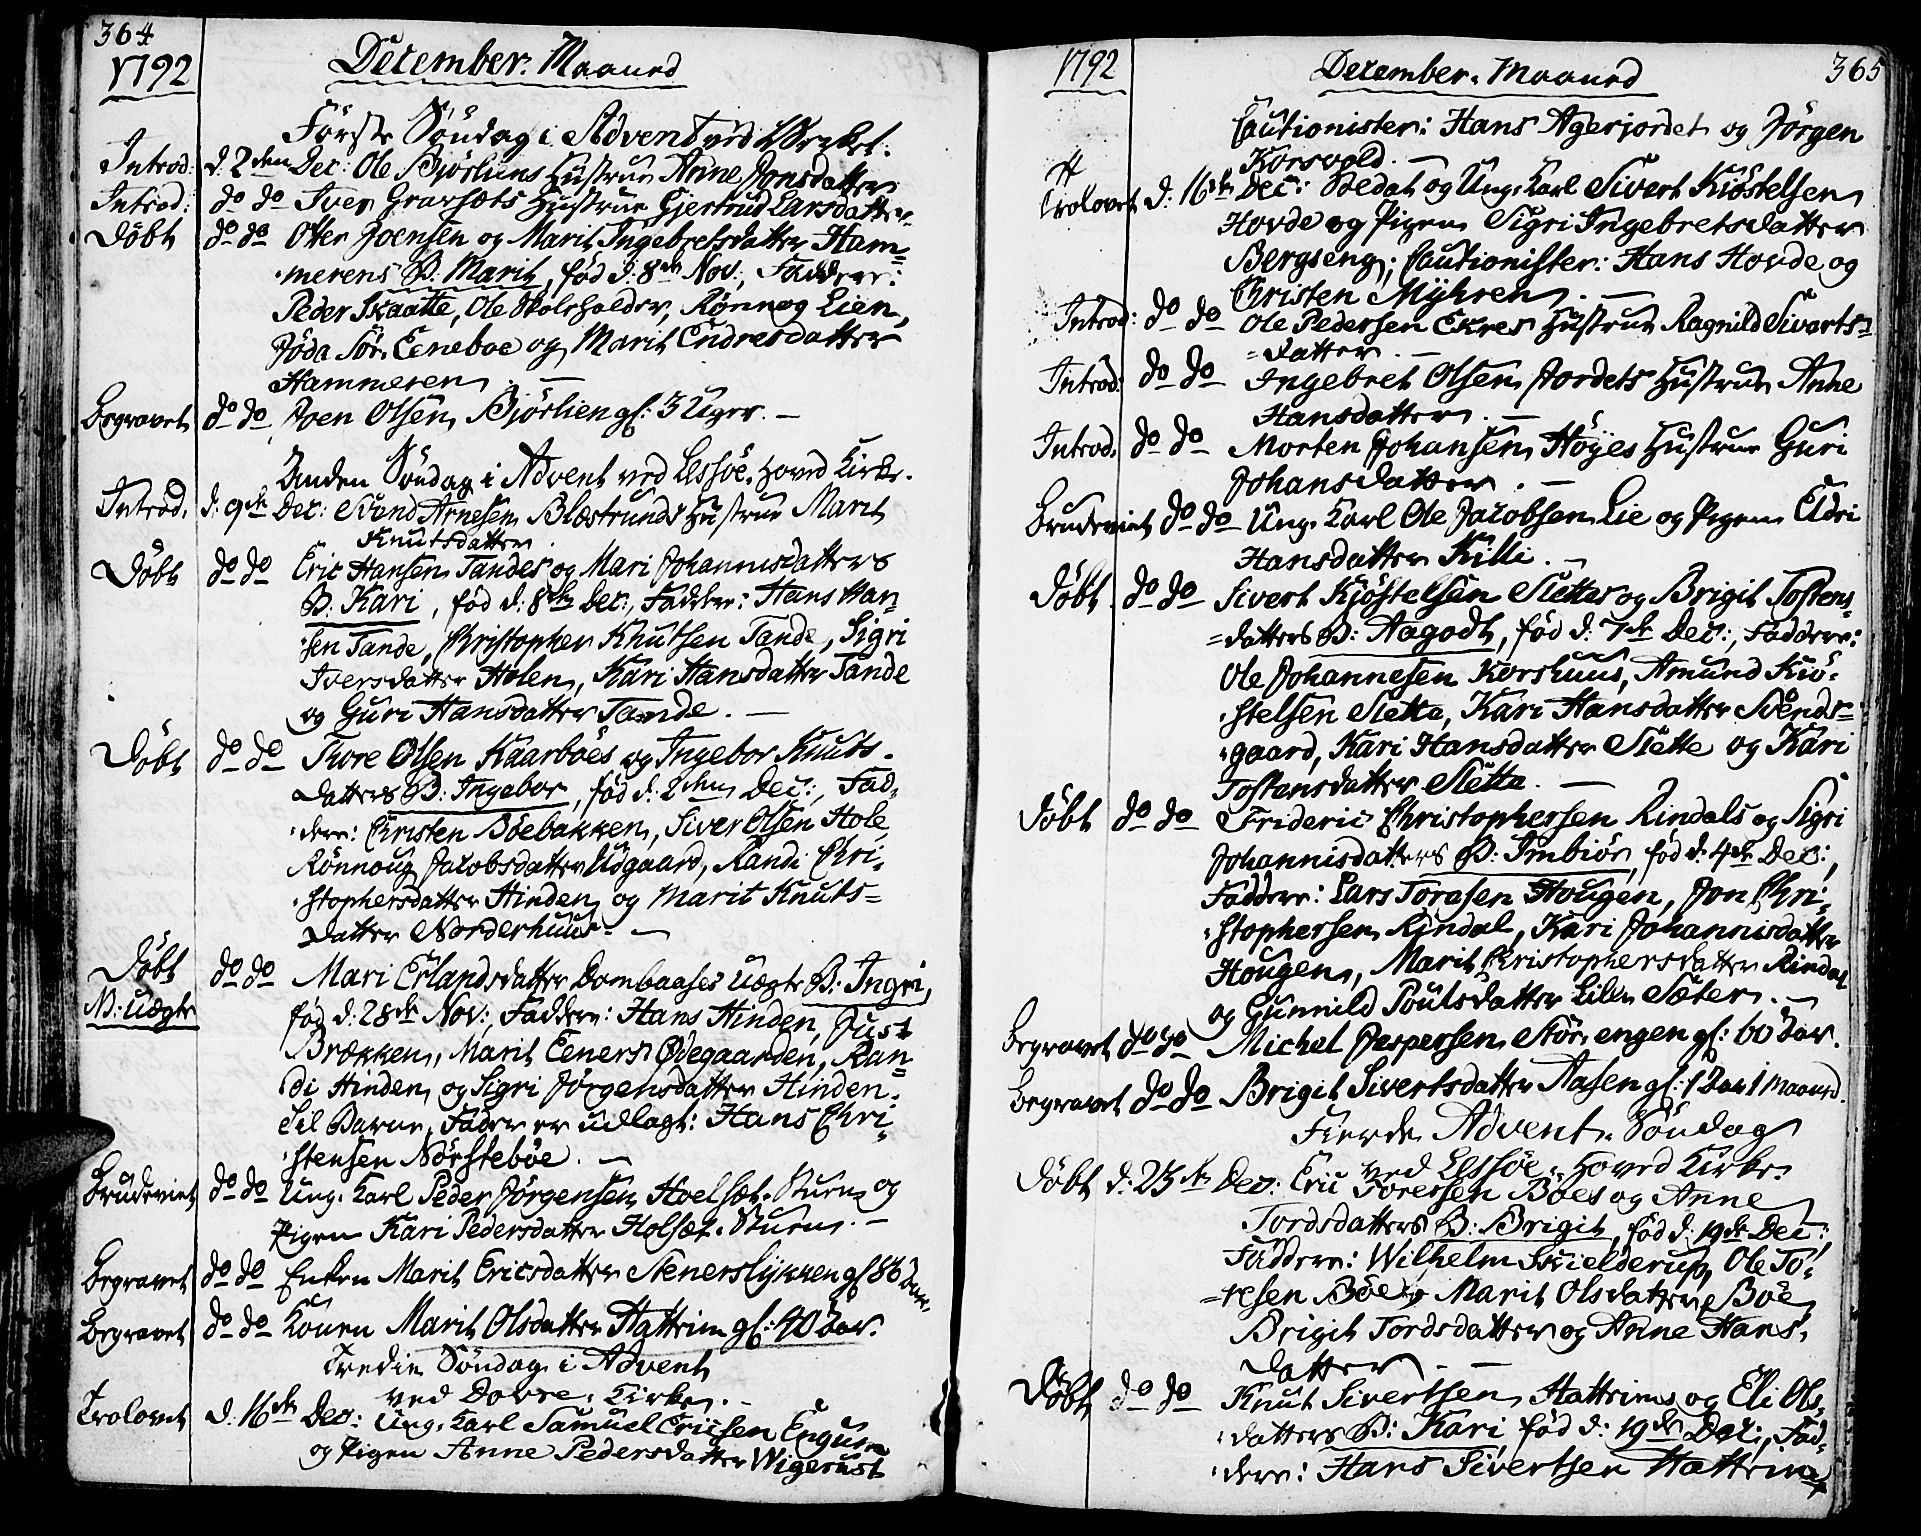 364
1792 December. Maaned
Første Søndag i Advent ved Værket.
Introd: d. 2den Dec: Ole Bjørliens Hustrue Anne Jonsdatter
Introd: do do Iver Gravsæts Hustrue Gjertrud Larsdatter.
Døbt do do Otter Joensen og Marit Ingebretsdatter Ham=
merens B: Marit, fød d: 8de Nov:, Faddere:
Peder Skaatte, Ole Skoleholder, Rønnog Lien,
Jøda Sør. Eeneboe og Marit Endresdatter
Hammeren. —
Begravet do do Joen Olsen Bjørlien gl: 3 Uger. —
Anden Søndag i Advent ved Lessøe. Hoved Kirke.
Introd. d. 9de Dec: Svend Arnesen Blæstrunds Hustrue Marit
Knutsdatter.
Døbt do do Eric Hansen Tandes og Mari Johannisdatters
B: Kari, fød d: 8de Dec:, Faddere: Hans Han=
sen Tande, Christopher Knutsen Tande, Sigri
Iversdatter Holen, Kari Hansdatter Tande
og Guri Hansdatter Tande. —
Døbt do do Thore Olsen Kaarboes og Ingebor Knuts=
datters B: Ingebor, fød d: 2den Dec:, Fad=
dere: Christen Böebakken, Siver Olsen Hole
Rönnoug Jacobsdatter Udgaard, Randi Chri=
stophersdatter Hinden og Marit Knuts=
datter Norderhuus. —
Døbt do do Mari Erlandsdatter Dombaases uægte B: Ingri,
N: uægte fød d: 28de Nov:, Faddere: Hans Hinden, Just
Brækken, Marit Eeners Ødegaarden, Ran=
di Hinden og Sigri Jørgensdatter Hinden.
Til Barne Fader er udlagt: Hans Chri=
stensen Nörstebøe. —
Brudeviet do do Ung. Karl Peder Jørgensen Hoelsæt. Stuen og
Pigen Kari Pedersdatter Holsæt. Stuen. —
Begravet do do Enken Marit Ericsdatter Stenerslykken gl 86 Aar.
Begravet do do Konen Marit Olsdatter Hattrim gl: 40 Aar.
Tredie Søndag i Advent
ved Dovre. Kirke. —
Trolovet d. 16de Dec: Ung. Karl Samuel Ericsen Engusen
og Pigen Anne Pedersdatter Wigerust
1792 December. Maaned 365
Cautionister: Hans Agerjordet og Jörgen
Korsvold. —
Trolovet d: 16de Dec: Soldat og Ung. Karl Sivert Kiöstelsen
Hovde og Pigen Sigri Ingebretsdatter
Bergseng; Cautionister: Hans Hovde og
Christen Myhren. —
Introd: do do Ole Pedersen Ekres Hustrue Ragnild Sivarts=
=datter. —
Introd: do do Ingebret Olsen Jordets Hustrue Anne
Hansdatter. —
Introd. do do Morten Johansen Höyes Hustrue Guri
Johansdatter. —
Brudeviet do do Ung. Karl Ole Jacobsen Lie og Pigen Eldri
Hansdatter Killi. —
Døbt. do do Sivert Kjöstelsen Slettes og Brigit Tostens=
=datters B: Aagodt, fød d: 7de Dec:, Faddere:
Ole Johannesen Korshuus, Amund Kiö=
stelsen Slette, Kari Hansdatter Svends=
gaard, Kari Hansdatter Slette og Kari
Tostensdatter Slette. —
Døbt do do Frideric Christophersen Rindals og Sigri
Johannisdatters B: Imbiör, fød d: 4de Dec:,
Faddere: Lars Toresen Hougen, Jon Chri=
stophersen Rindal, Kari Johannisdatter
Hougen, Marit Christophersdatter Rindal
og Gunnild Poulsdatter Lillesæter. —
Begravet do do Michel Jespersen Stör. engen gl: 60 Aar.
Begravet do do Brigit Sivertsdatter Aasen gl: 1 Aar 1 Maaned.
Fierde Advent. Söndag
ved Lessöe. Hoved Kirke.
Døbt d: 23de Dec: Eric Toresen Böes og Anne
Tordsdatters B: Brigit, fød d. 19de Dec:
Faddere: Wilhelm Skielderup, Ole To=
=resen Böe, Marit Olsdatter Böe,
Brigit Tordsdatter og Anne Hans=
datter. —
Døbt do do Knut Sivertsen Hattrims og Eli Ols=
datters B: Kari fød d: 19de Dec:, Fad=
dere: Hans Sivertsen Hattrim,